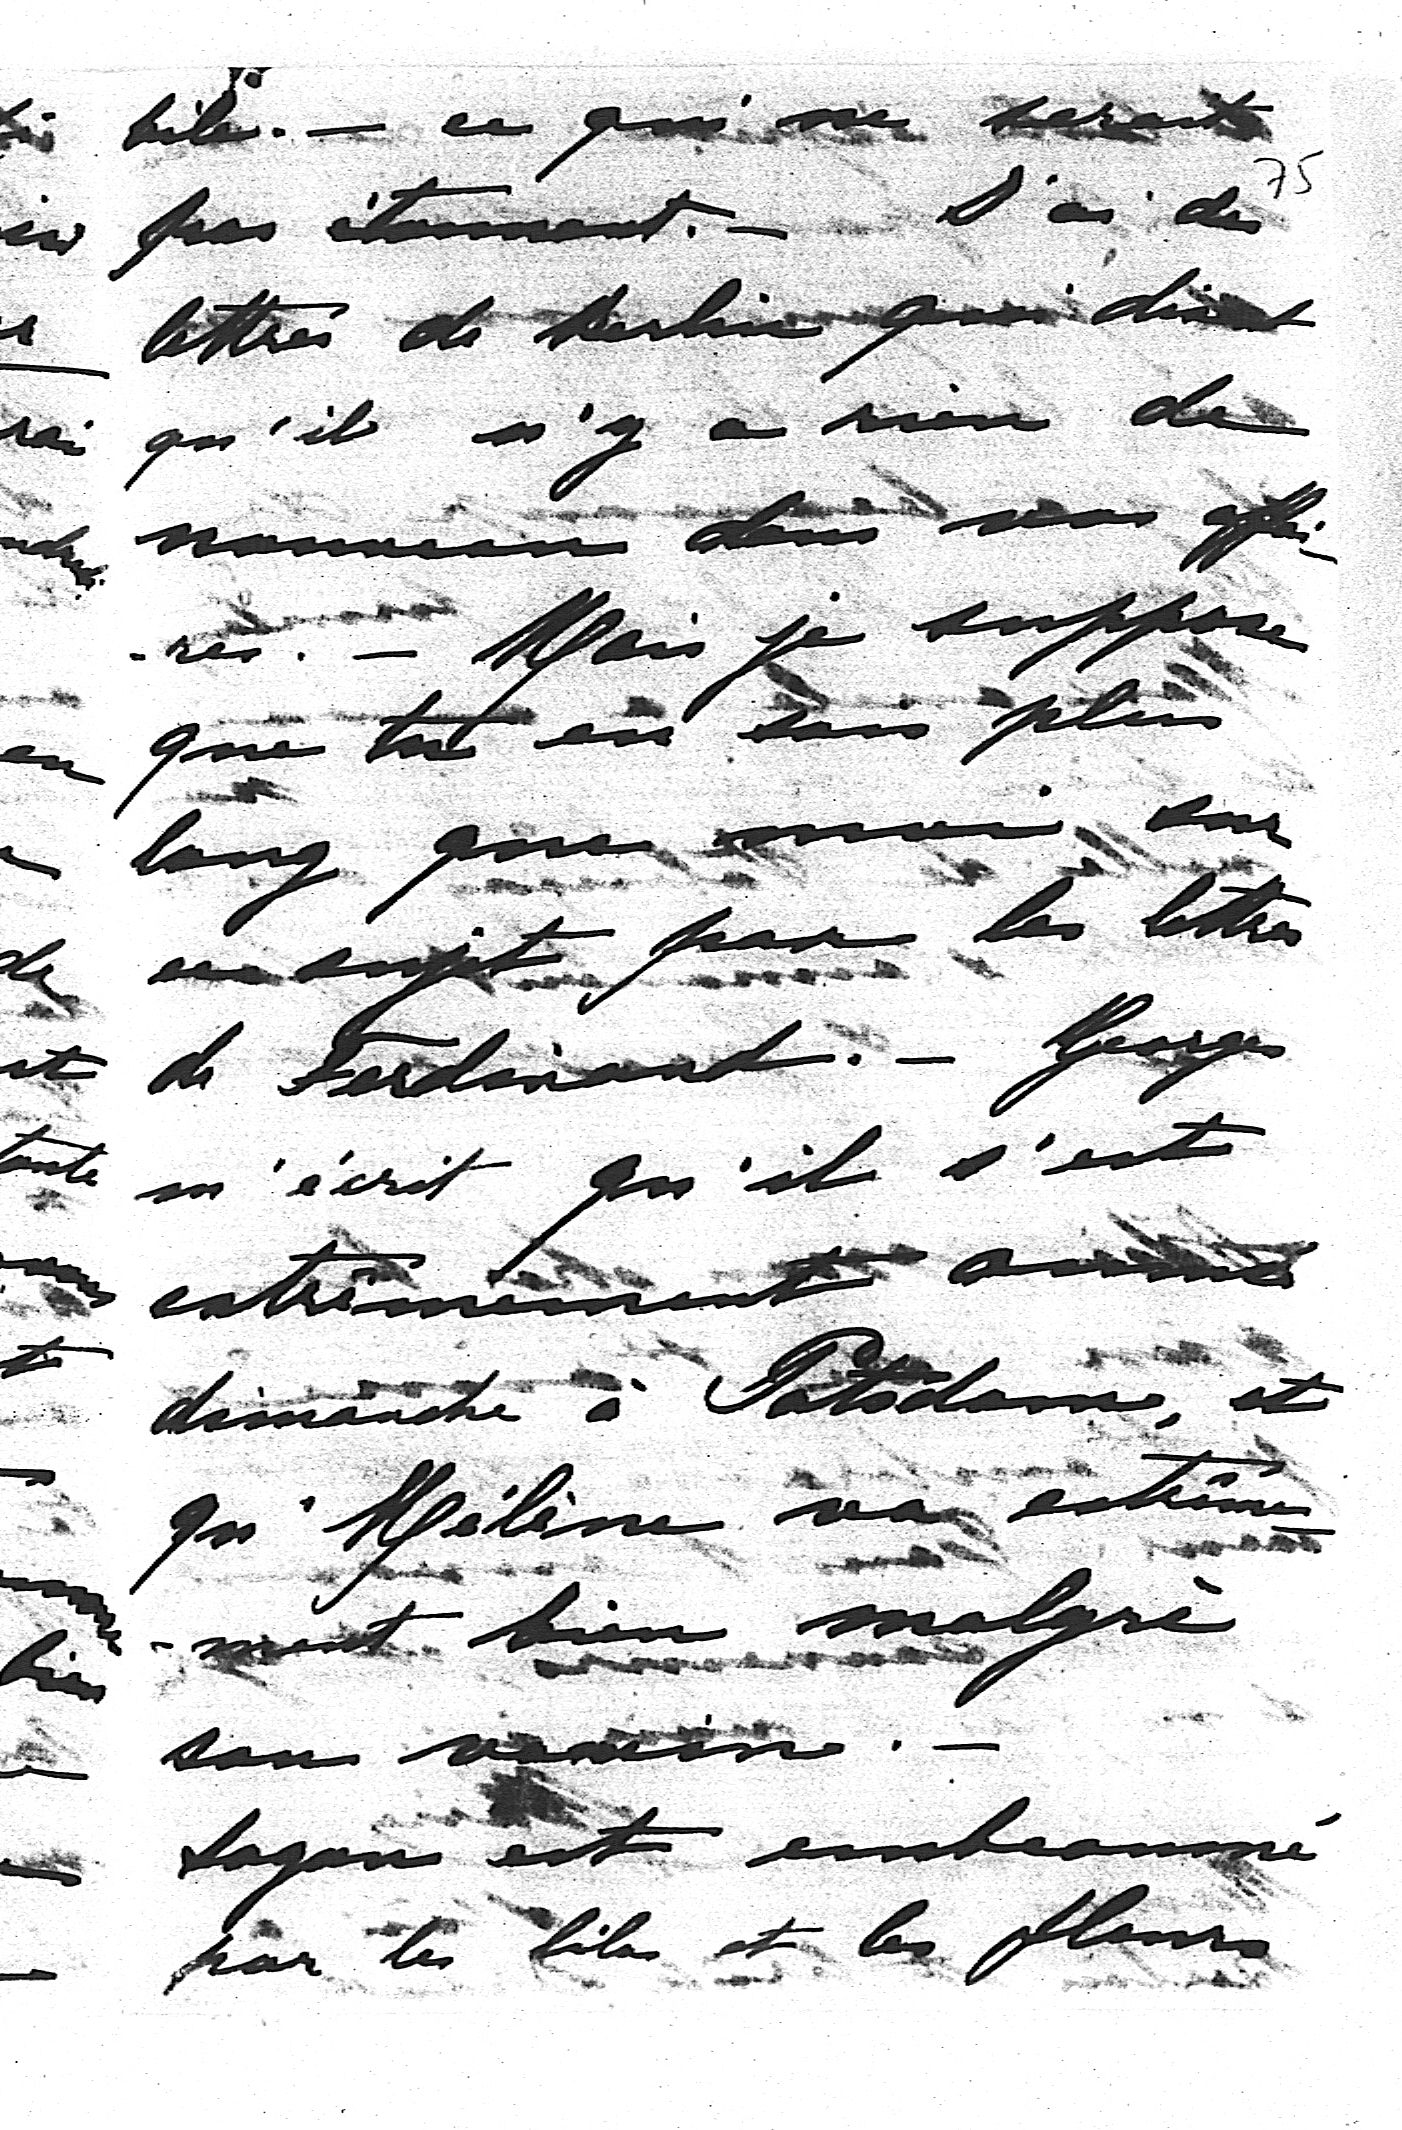 bile. — ce qui ne serait
75
pas étonnant. — J'ai des
lettres de Berlin qui disent
qu'il n'y a rien de
nouveau dans nos affai-
-res. — Mais je suppose
que tu en sais plus
long que moi sur
ce sujet par les lettres
de Ferdinand. — Georges
m'écrit qu'il s'est
extrêmement amusé
dimanche à Potsdam, et
qu'Hélène va extrême-
-ment bien malgré
son vaccin. —
Sagan est embeaumé
par les lilas et les fleurs